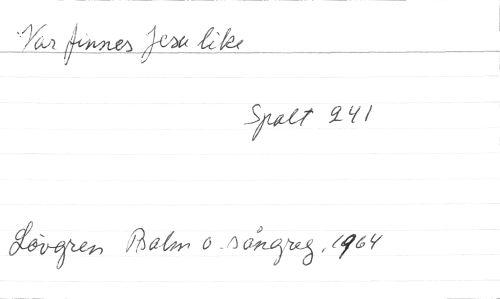 Var finnes Jesu like
Spalt 241
Lövgren Psalm o. sångreg. 1964